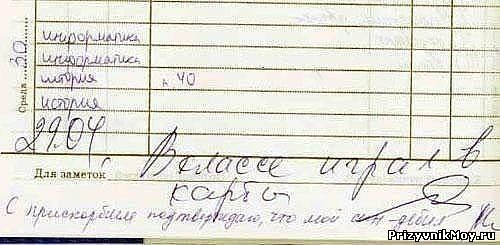 Среда 30
информатика
информатика
история п. 40
история
29.04. В классе играл в
Для заметок карты
С прискорбием подтверждаю, что мой сын - дебил
PrizyvnikMoy.ru